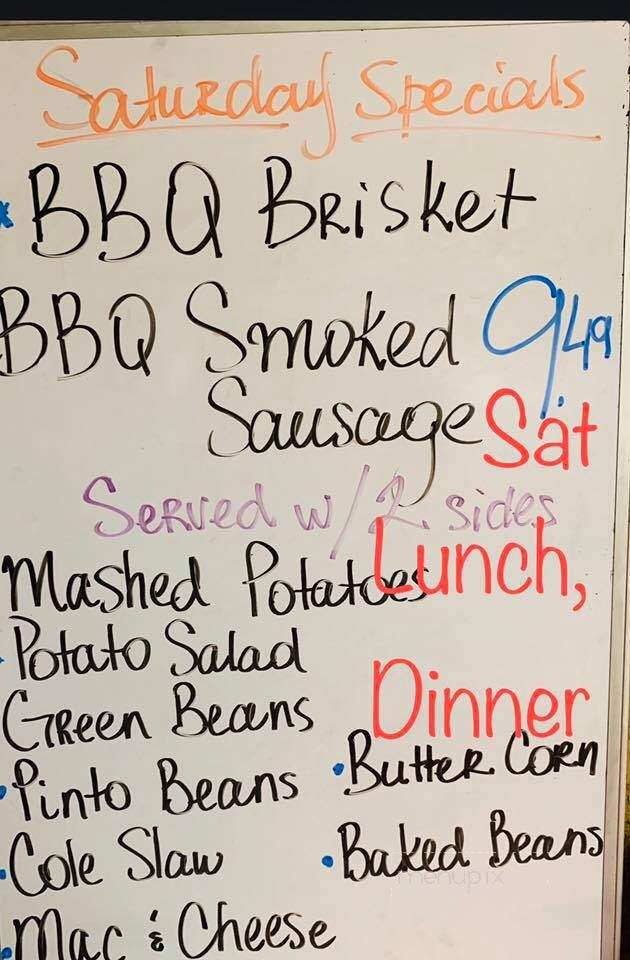 Saturday Specials
BBQ Brisket
BBQ Smoked 9.49
Sausage Sat
Served w/ 2 sides
Lunch,
Mashed Potatoes
Potato Salad
Dinner
Green Beans
Pinto Beans
• Butter Corn
• Cole Slaw
• Baked Beans
menupix
• Mac & Cheese